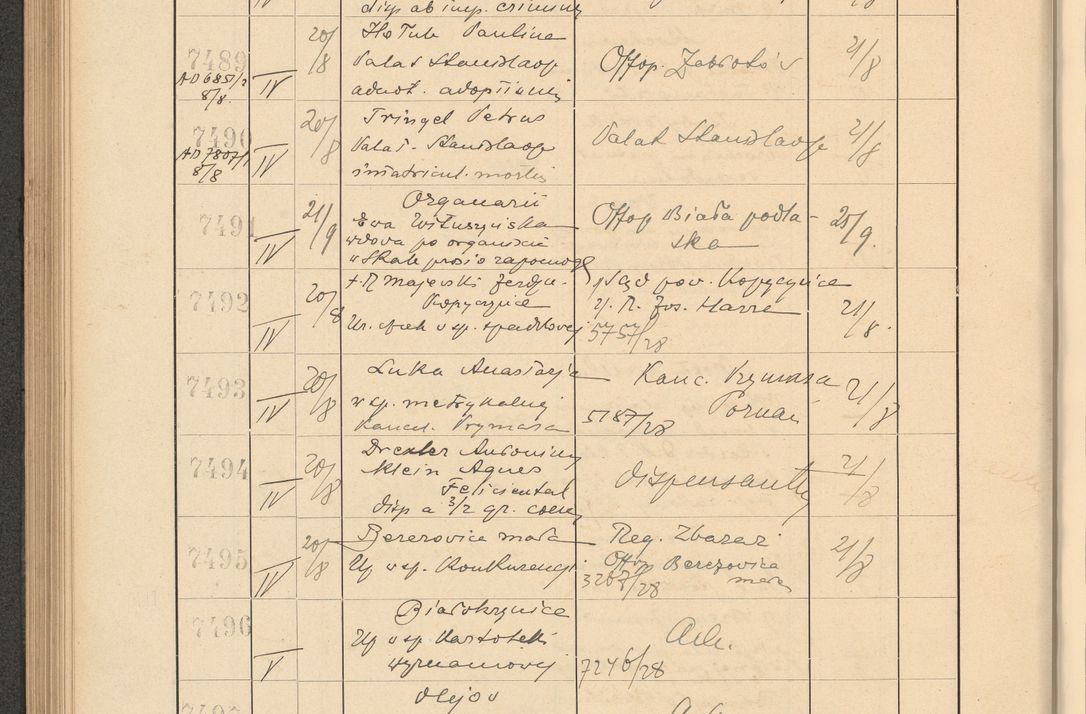 IV
disp ab imp. criminis
7489
AD 6851/2
8/8.
IV
20/8
Palat Stanislaop
adnot. adoptionis
Offop.
21/8
7490
AD 7807/1
8/8
IV
20/8
Tringel Petrus
Palat. Stanislaop
immatricul. mortis
Palat Stanislaop
21/8
7491
IV
21/9
Organarii
Ewa Wituszyńska
wdowa po organiście
w Skale prosi o zapomogę
Offop Biała podla-
ska
25/9.
7492
IV
20/8
Majewski Ferdyn.
Kopyczyńce
w sp. spadkowej
Sąd pow. Kopyczyńce
Jos. Harre
5757/28
21/8.
7493
IV
20/8
Luka Anastazja
w sp. metrykalnej
Kancel. Prymasa
Kanc. Prymasa
Poznań
5187/28
21/8
7494
IV
20/8
Drexler Antonius
Klein Agnes
Felicienthal
disp a 3/2 gr. consg
dispensantur
21/8
7495
IV
20/8
Berezowica mała
Up w sp. Konkurencji
Reg. Zbaraż
Offop Berezowica
mała
3287/28
21/8
7496
V
Białokrynica
Up w sp. Kartoteki
wyznaniowej
Ad.
7246/28
Olejów